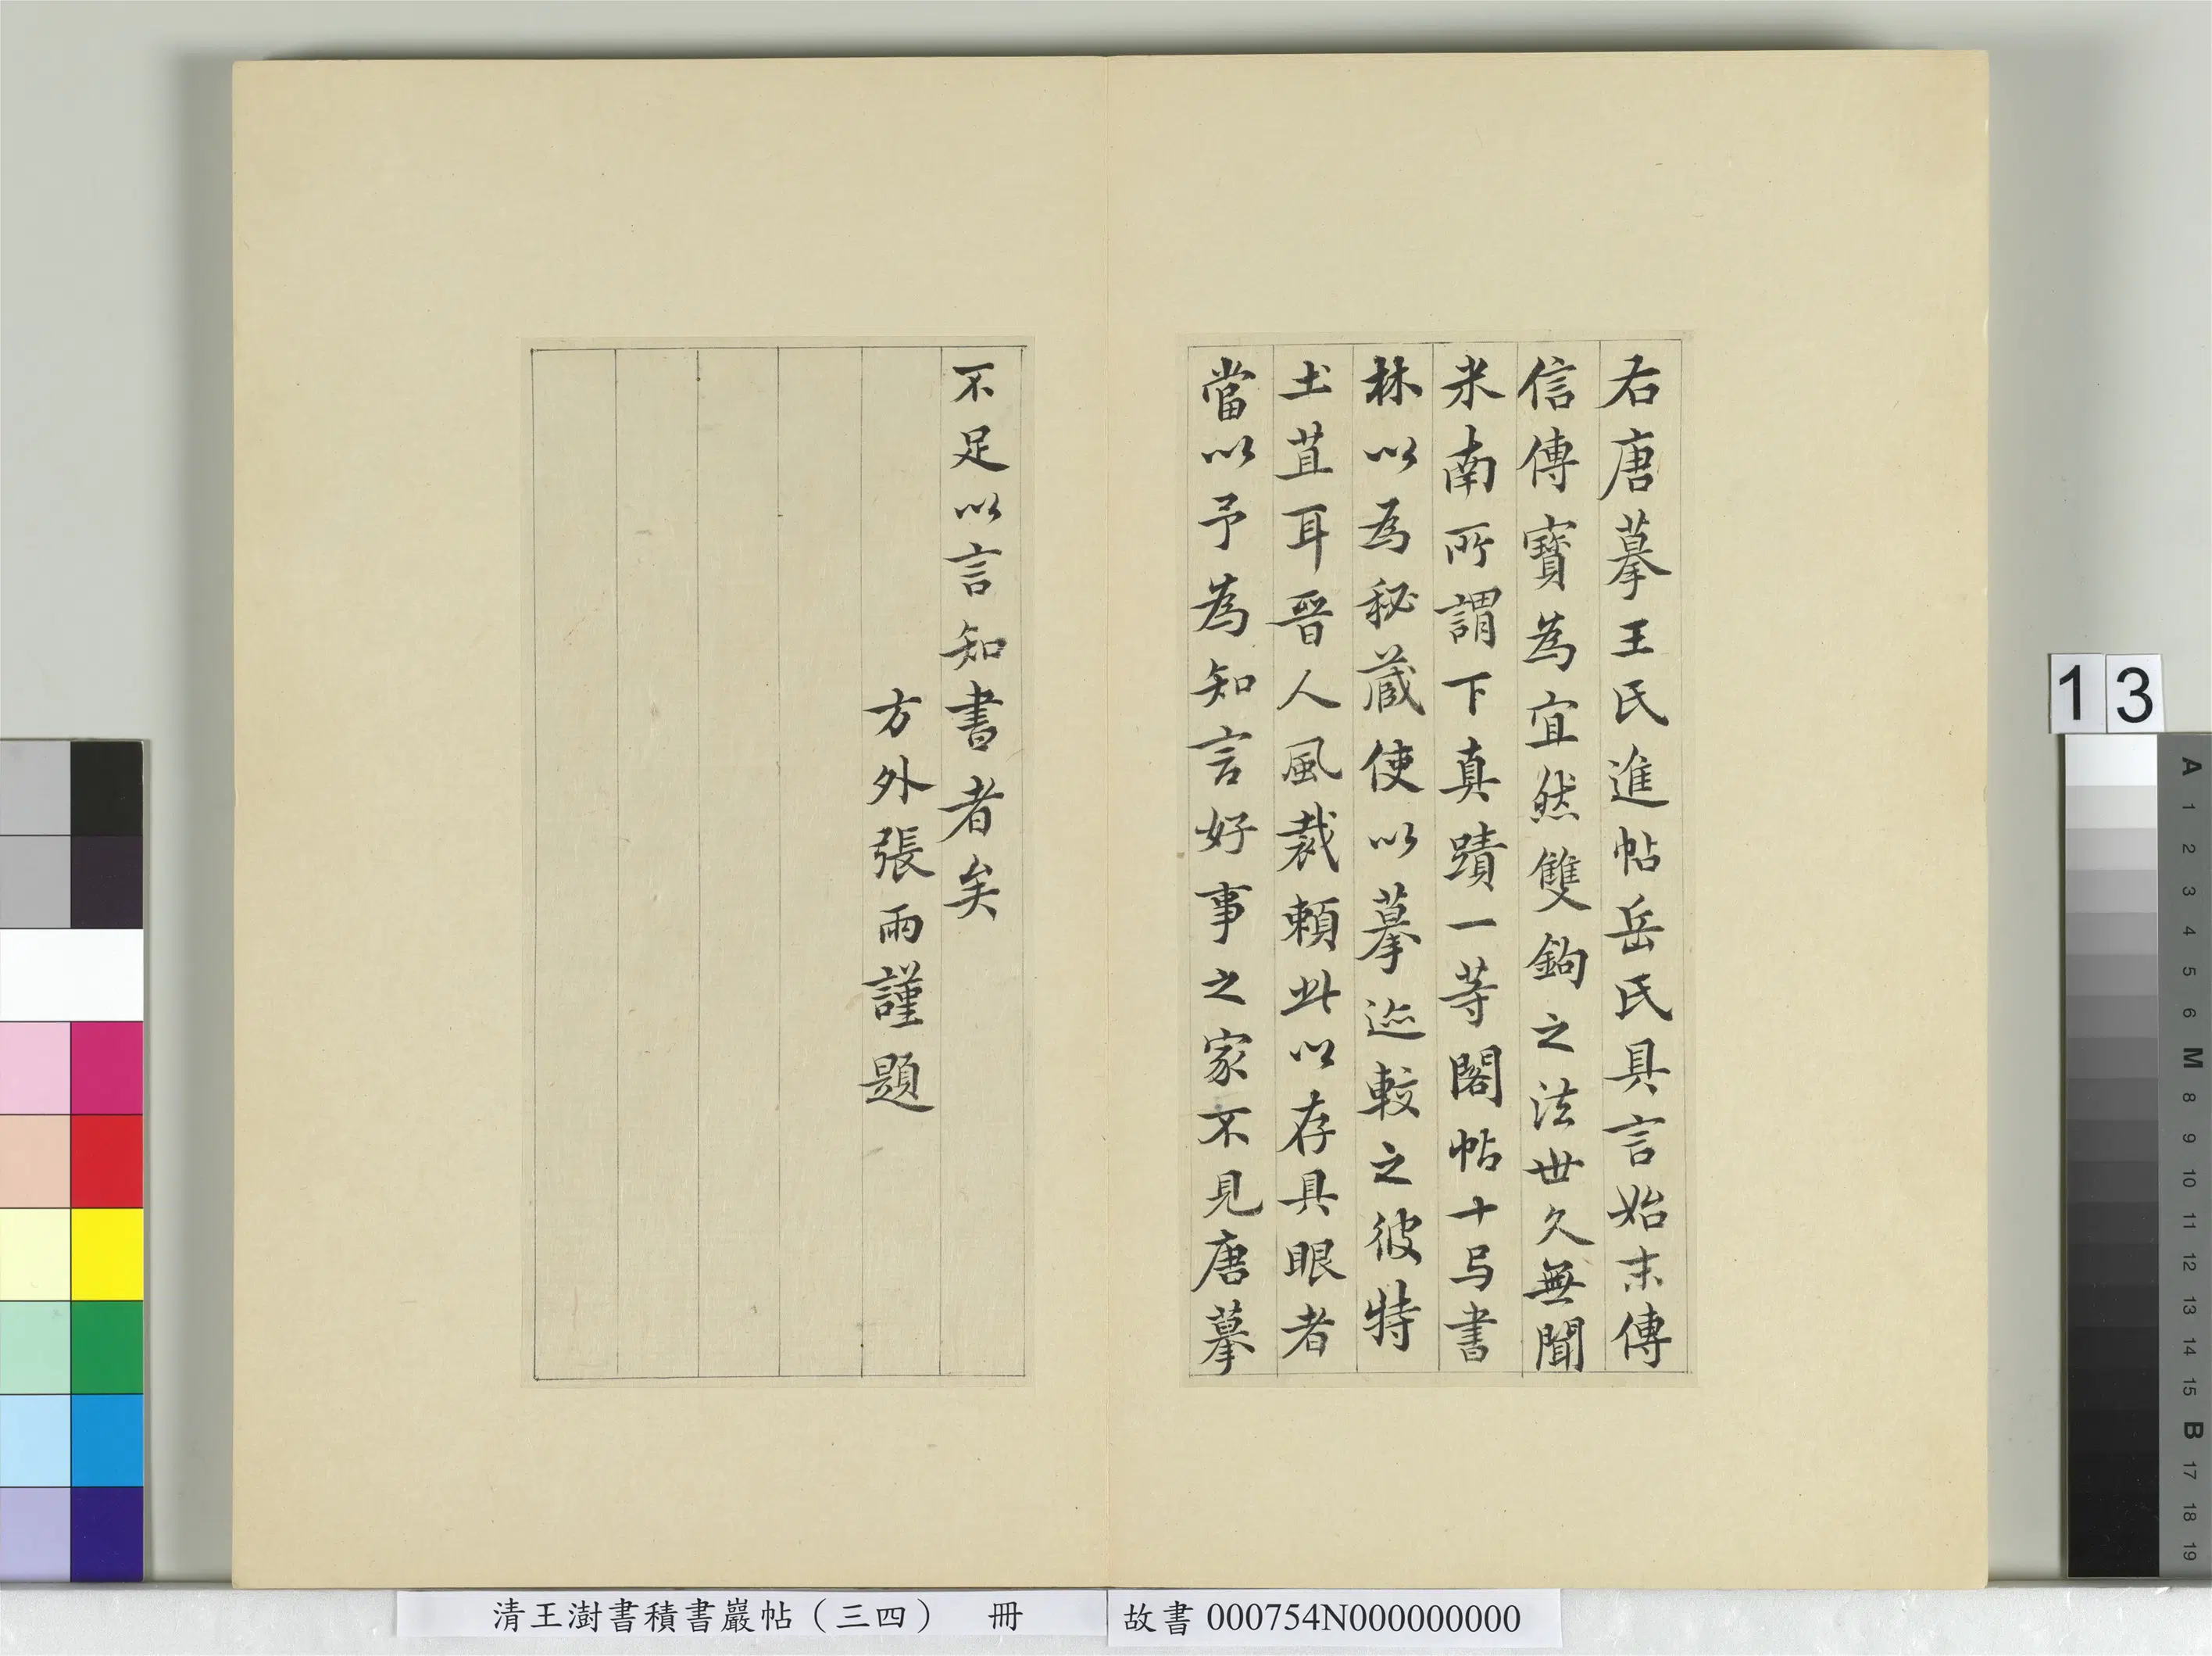 右唐摹王氏進帖岳氏具言始末傳
信傳寶為宜然雙鉤之法世久無聞
米南所謂下真蹟一等閣帖十与書
林以為秘蔵使以摹迹較之彼特
土苴耳晉人風裁賴此以存具眼者
當以予為知言好事之家不見唐摹
不足以言知書者矣
方外張雨謹題
13
A 1 2 3 4 5 6 M 8 9 10 11 12 13 14 15 B 17 18 19
清王澍書積書巖帖（三四） 冊
故書 000754N000000000